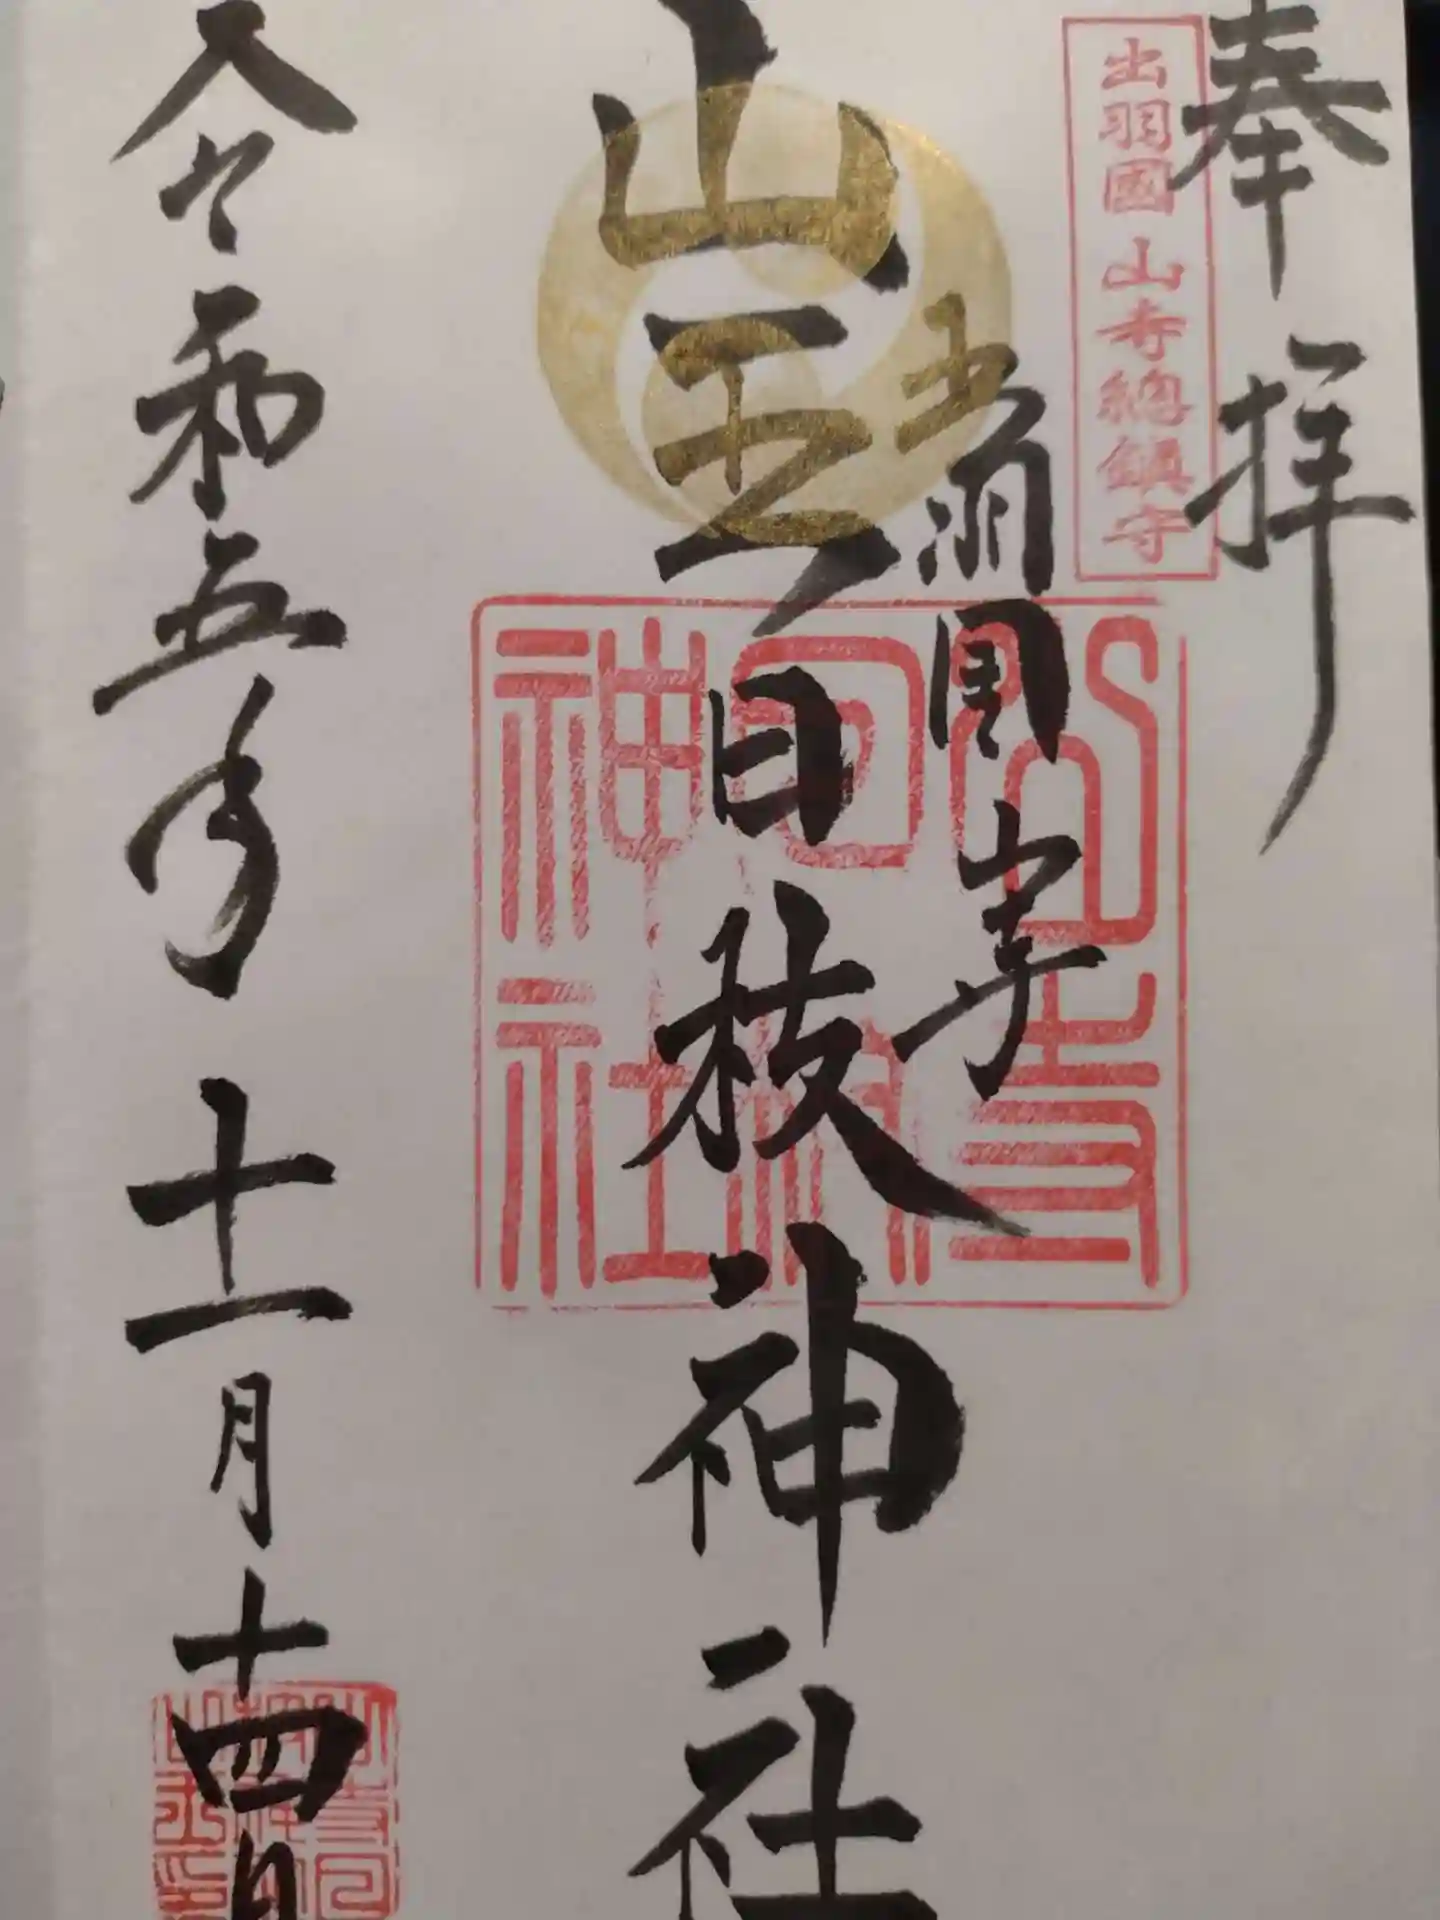 奉拝
出羽國 山寺總鎮守
出羽国山寺
山王日枝神社
山寺日枝神社
令和五年十一月十四日